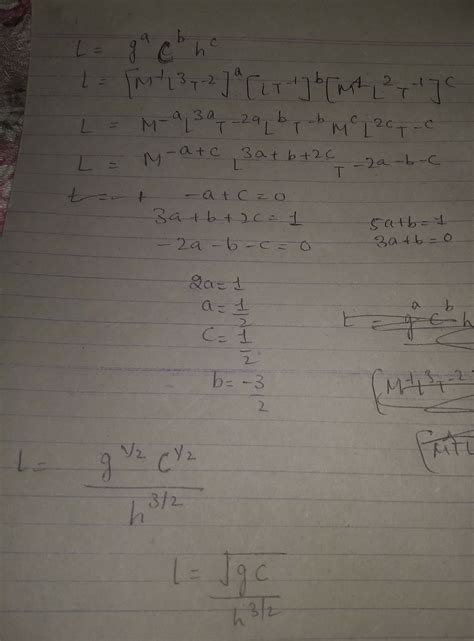 L = g^a c^b h^c
L = [M^-1 L^3 T^-2]^a [LT^-1]^b [M^1 L^2 T^-1]^c
L = M^-a L^3a T^-2a L^b T^-b M^c L^2c T^-c
L = M^-a+c L^3a+b+2c T^-2a-b-c
-a+c=0
3a+b+2c=1 5a+b=1
-2a-b-c=0 3a+b=0
2a=1
a=1/2
c=1/2
t = g^a c^b h
b=-3/2
[M^-1 L^3 T^-2
L = g^1/2 c^1/2 / h^3/2
L = √gc / h^3/2